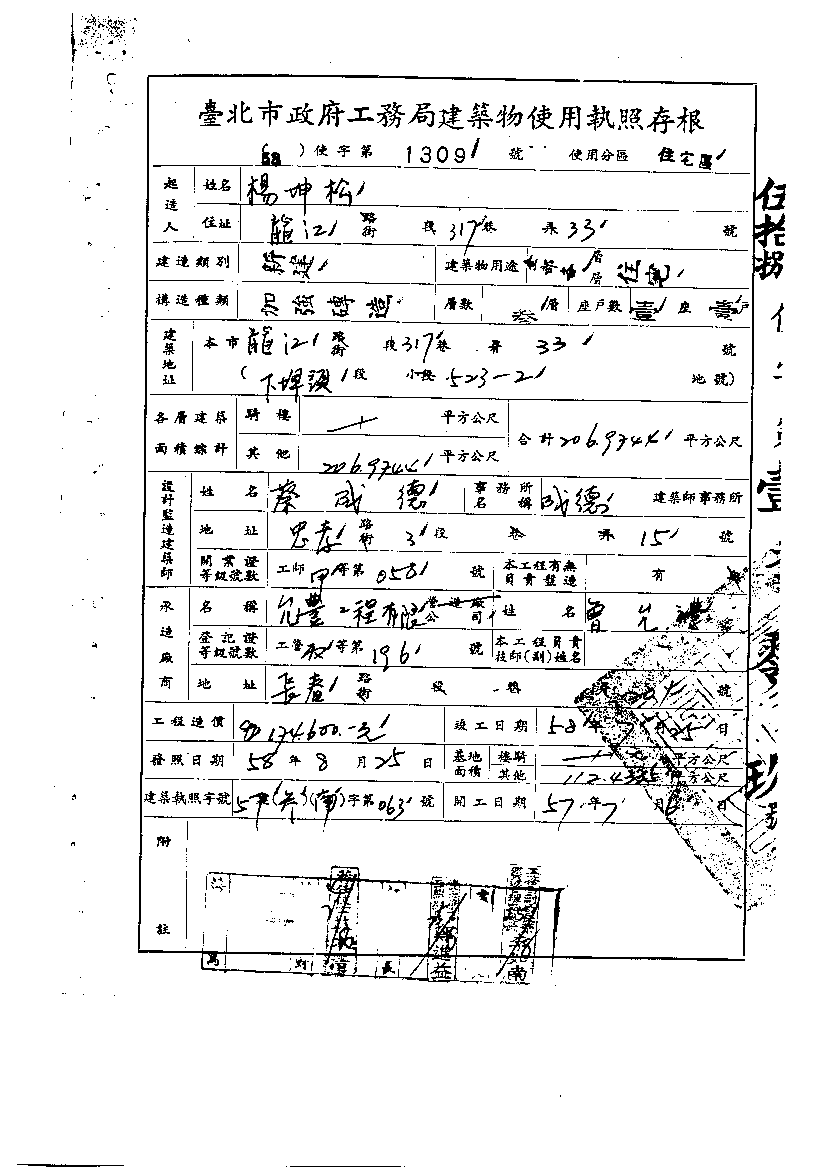 臺北市政府工務局建築物使用執照存根
)使字第 1309 號 使用分區 住宅區
起造人 姓名 楊坤松
住址 龍江 路街 段 317 巷 弄 33 號
建造類別 新建 建築物用途 層層 住宅
構造種類 加強磚造 層數 叁層 座戶數 壹座 壹戶
建築地址 本市 龍江 路街 段 317 巷 弄 33 號
(下埤頭 段 小段 523-2 地號)
各層建築面積總計 騎樓 平方公尺 合計 206.9744 平方公尺
其他 206.9744 平方公尺
設計監造建築師 姓名 蔡成德 事務所名稱 成德 建築師事務所
地址 忠孝 路街 3 段 巷 弄 15 號
開業證等級號數 工師甲等第 058 號 本工程有無負責監造 有 無
承造廠商 名稱 允豐工程有限 營造廠公司 姓名 曾允禮
登記證等級號數 工營 等第 196 號 本工程負責技師(副)姓名
地址 長春 路街 段 巷 號
工程造價 174.600.-元 竣工日期 58年 25日
發照日期 58年8月25日 基地面積 騎樓 平方公尺
其他 112.4335 平方公尺
建築執照字號 57 字第 063 號 開工日期 57年7月6日
附註
伍拾捌
壹
玖